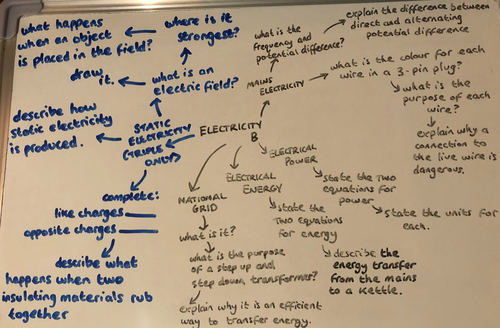 what happens
when an object
is placed in the field?
where is it
strongest?
draw
it.
what is an
electric field?
describe how
static electricity
is produced.
STATIC
ELECTRICITY
(TRIPLE
ONLY)
complete:
like charges
opposite charges
describe what
happens when two
insulating materials rub
together
ELECTRICITY
B
what is the
frequency and
potential difference?
explain the difference between
direct and alternating
potential difference
MAINS
ELECTRICITY
what is the colour for each
wire in a 3-pin plug?
what is the
purpose of each
wire?
explain why a
connection to
the live wire is
dangerous.
ELECTRICAL
POWER
state the two
equations for
power
state the units for
each.
ELECTRICAL
ENERGY
state the
two equations
for energy
describe the
energy transfer
from the mains
to a kettle.
NATIONAL
GRID
what is it?
what is the purpose
of a step up and
step down transformer?
explain why it is an efficient
way to transfer energy.